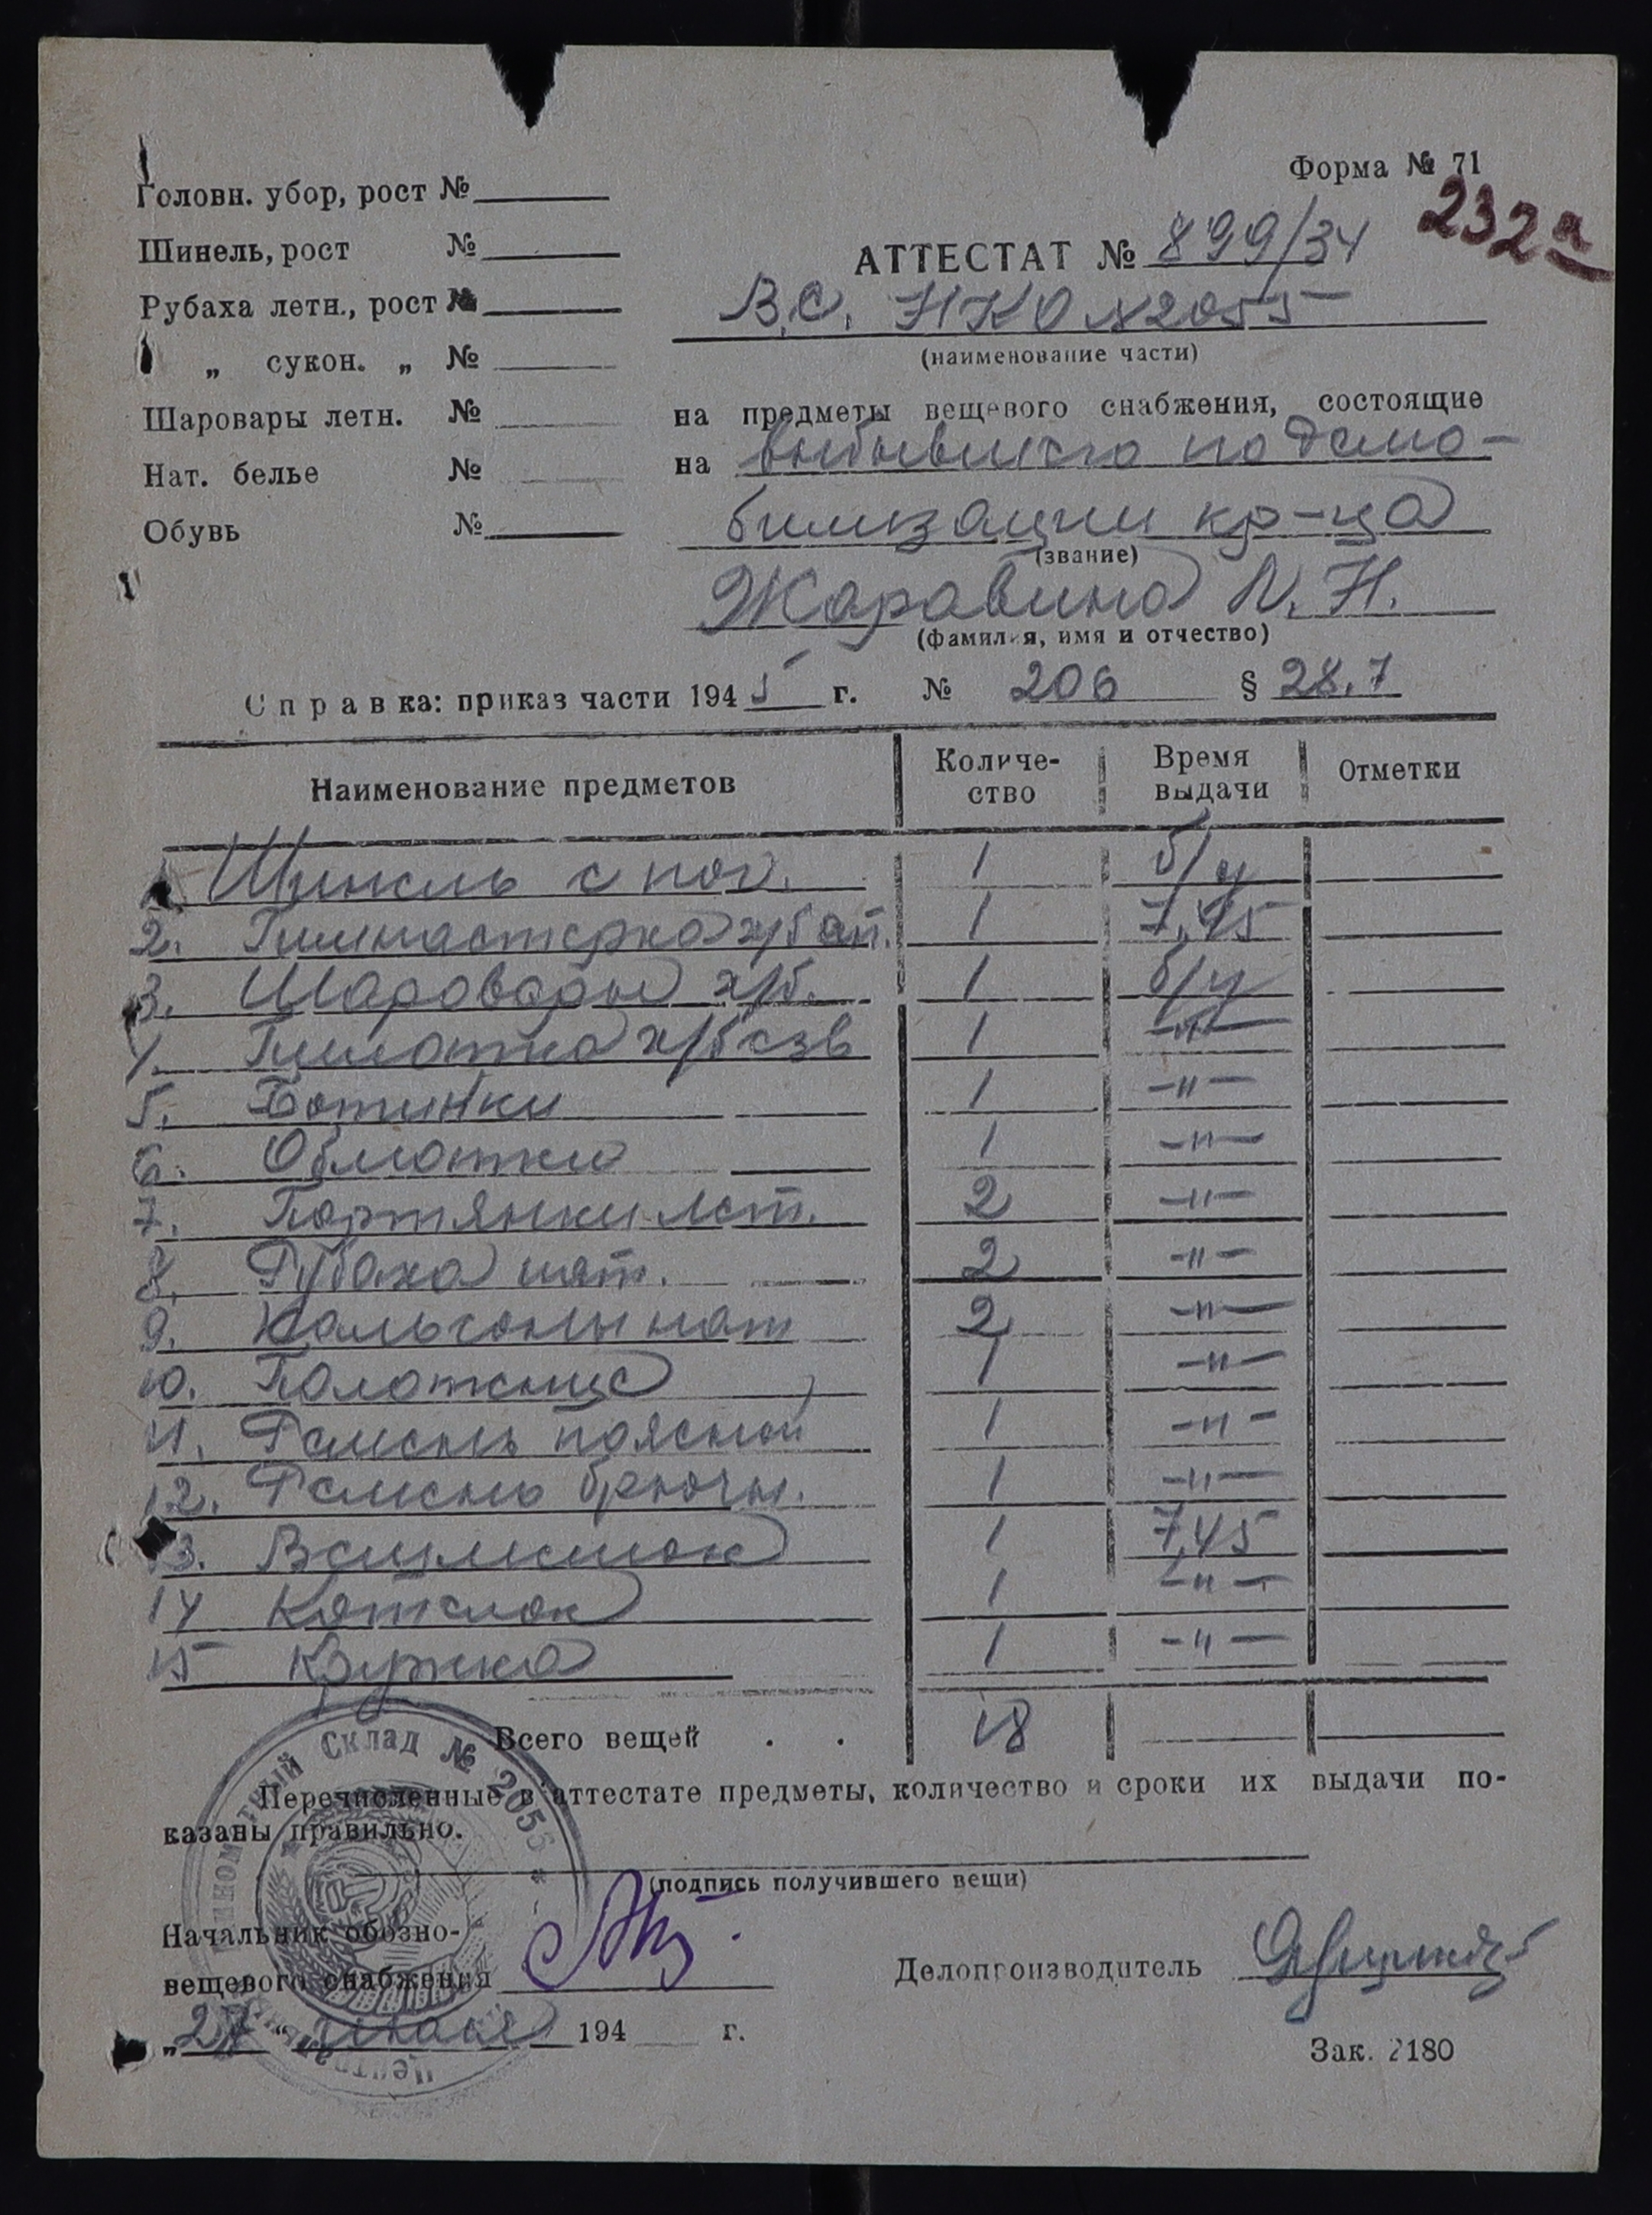 Форма № 71
232а
Головн. убор, рост №
Шинель, рост №
Рубаха летн., рост №
„ сукон. „ №
Шаровары летн. №
Нат. белье №
Обувь №
АТТЕСТАТ № 899/34
В.С. НКО №2055
(наименование части)
на предметы вещевого снабжения, состоящие
на выбывшего по демо-
билизации кр-ца
(звание)
Жаравина Н.
(фамилия, имя и отчество)
Справка: приказ части 1945 г. № 206 § 28.7
Наименование предметов Количе-ство Время выдачи Отметки
1. Шинель с пог. 1 б/у
2. Гимнастерка х/б 1 7.45
3. Шаровары х/б. 1 б/у
4. Пилотка х/б 1 -"-
5. Ботинки 1 -"-
6. Обмотки 1 -"-
7. Портянки лет. 2 -"-
8. Рубаха нат. 2 -"-
9. Кальсоны нат 2 -"-
10. Полотенце 1 -"-
11. Ремень поясной 1 -"-
12. Ремень брючн. 1 -"-
13. Вещмешок 1 7.45
14 Котелок 1 -"-
15 Кружка 1 -"-
Всего вещей . . 18
Перечисленные в аттестате предметы, количество и сроки их выдачи по-
казаны правильно.
(подпись получившего вещи)
Начальник обозно-
вещевого снабжения
Делопроизводитель
„27“ июля 194 г.
Зак. 2180
Склад № 2055